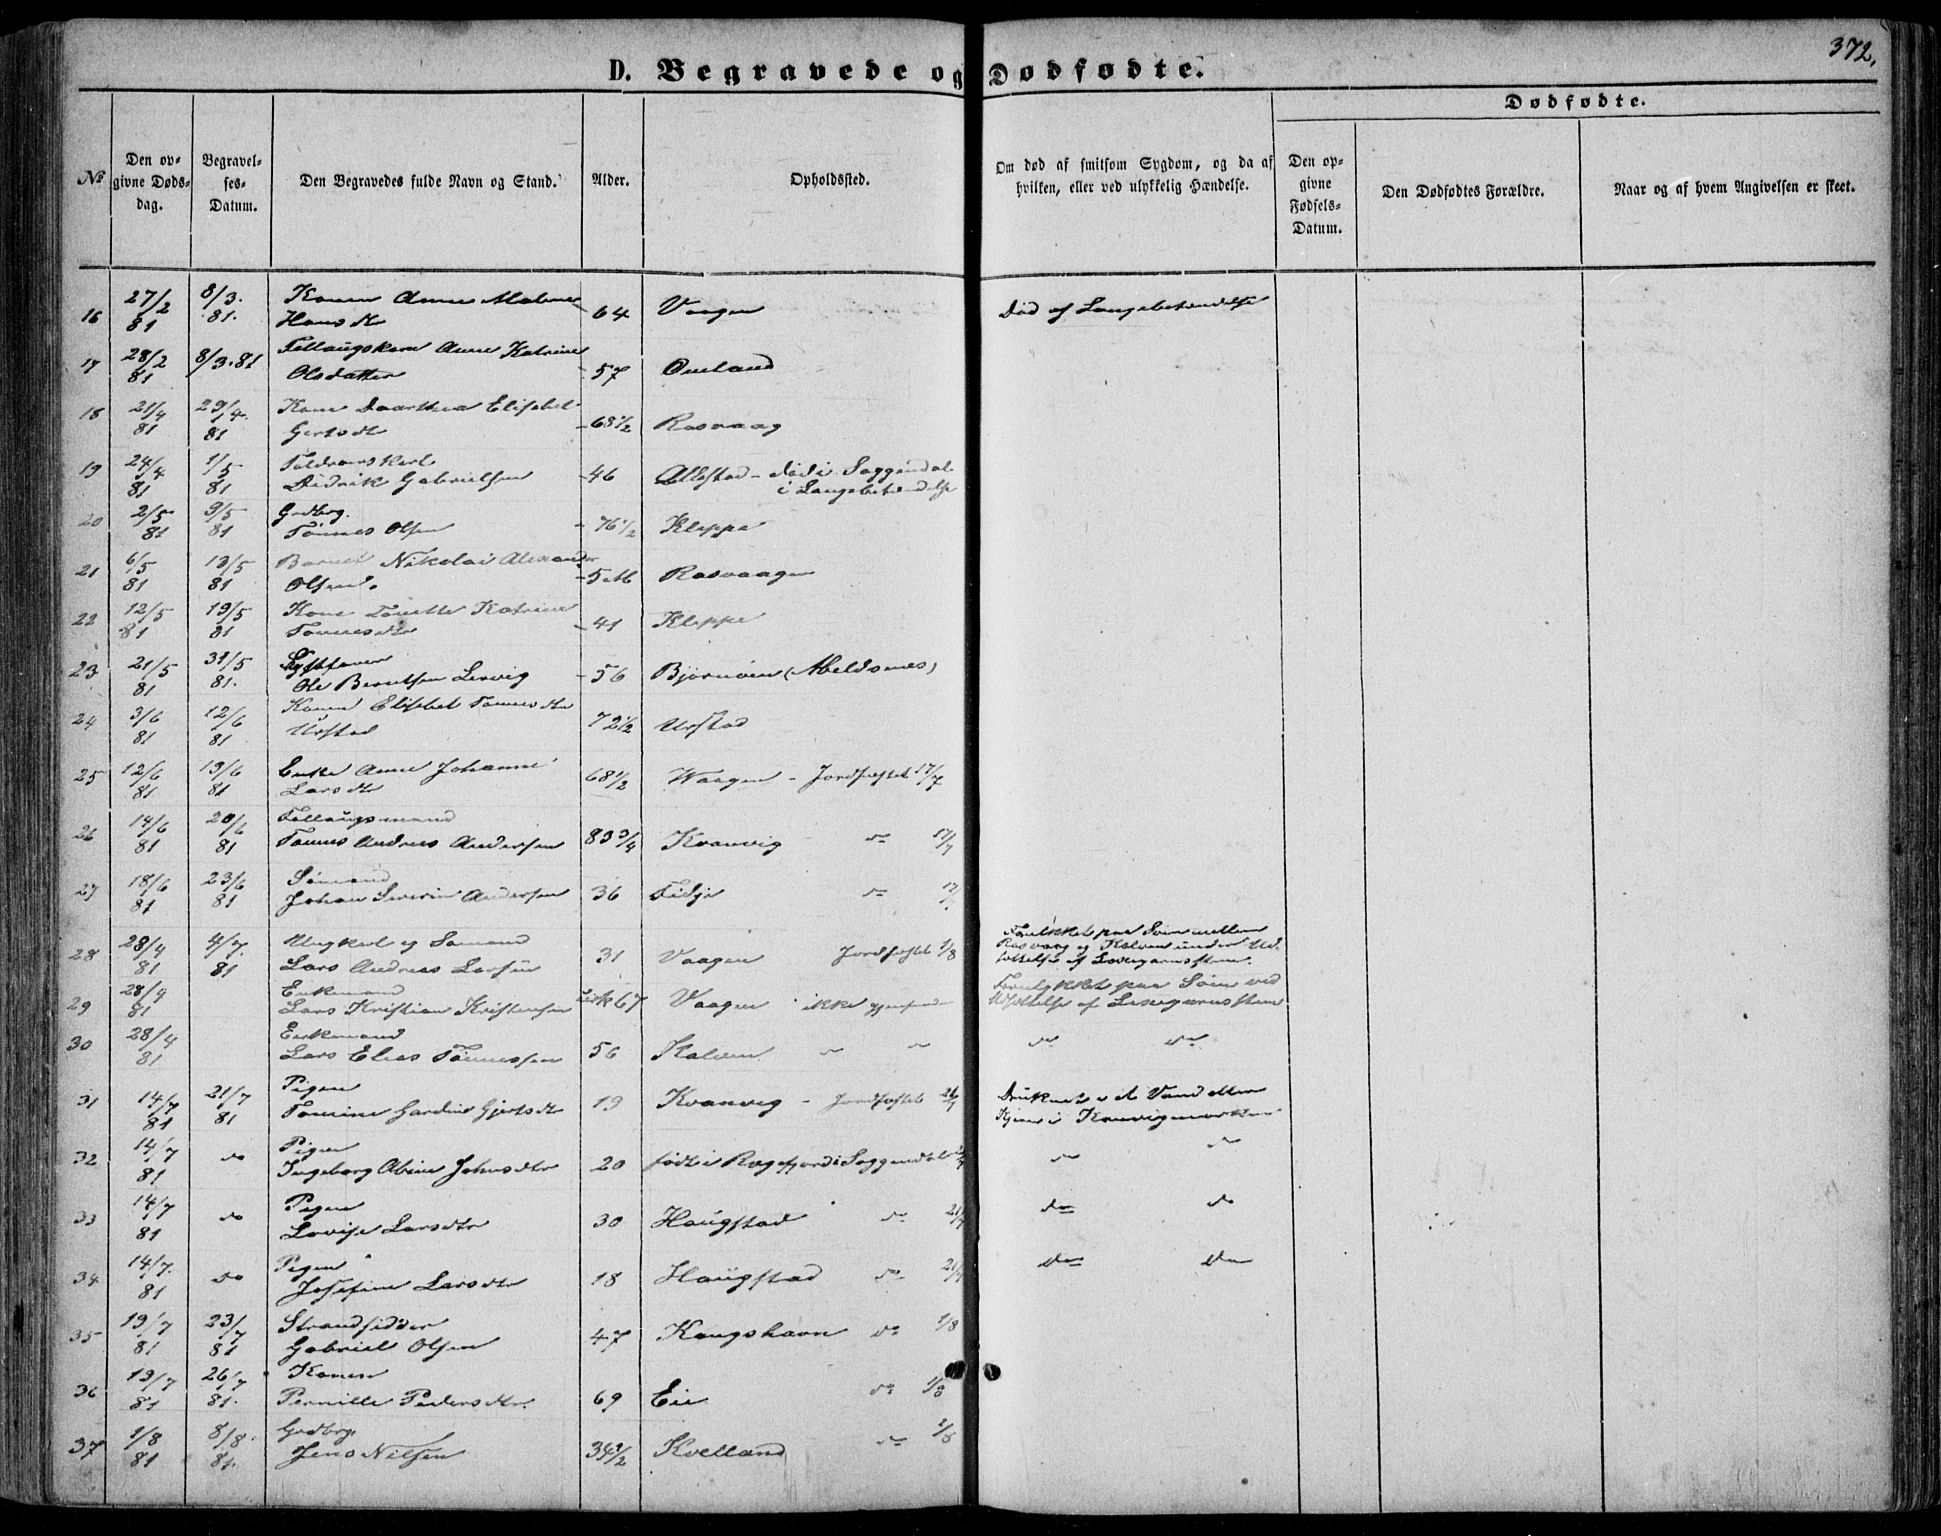 372.
D. Begravede og Dødfødte.
Dødfødte.
№
Den opgivne Dødsdag.
Begravelses-Datum.
Den Begravedes fulde Navn og Stand.
Alder.
Opholdssted.
Om død af smitsom Sygdom, og da af hvilken, eller ved ulykkelig Hændelse.
Den opgivne Fødsels-Datum.
Den Dødfødtes Forældre.
Naar og af hvem Angivelsen er skeet.
16 27/2 81 8/3. 81. Konen Anne Malene Hansdtr 64 Vaagen Død af Lungebetændelse
17 28/2 81 8/3.81 Fellaugskone Anne Katrine Olsdatter 57 Omland
18 21/4 81 29/4. 81 Kone Daarthea Elisabet Gertsdtr 63 1/2 Rasvaag
19 24/4 81 1/5 81 Didrik Gabrielsen 46 Ollestad - død i Soggendal i Lungebetændelse
20 2/5 81 9/5 81 Grdbrg. Tønnes Olsen 76 1/2 Kleppe
21 6/5 81 13/5 81 Barnet Nikolai Alexander Olsen. 5 M Rasvaagen
22 12/5 81 19/5 81 Kone Tonette Katrine Tønnesdtr 41 Kleppe
23 21/5 81 31/5 81. Ole Berntsen Lervig 56 Bjørnøen (Abeldsnes)
24 3/6 81 12/6 81 Konen Elisabet Tønnesdtr Urstad 72 1/2 Urstad
25 12/6 81 19/6 81 Enke Anne Johanne Larsdtr 68 1/2 Waagen - Jordfæstet 17/7
26 14/6 81 20/6 81 Fellaugsmand Tønnes Andreas Andersen 83 3/4 Kvanvig do 17/7
27 18/6 81 23/6 81 Sømand Johan Severin Andersen 36 Fidje do 17/
28 28/4 81 4/7. 81 Ungkarl og Sømand Lars Andreas Larsen 31 Vaagen Jordfæstet 1/8 Forulykket paa Søen mellem Rasvaag og Kalven under Udsættelse af
29 28/4 81 Enkemand Lars Kristian Kristensen 67 Vaagen ikke gjenfunden Forulykket paa Søen ved Udsættelse af
30 28/4 81 Enkemand Lars Elias Tønnessen 56 Kalven " " do do
31 14/7 81 21/7 81 Pigen Tomine Gardine Gjertsdtr 19 Kvanvig - Jordfæstet 21/7 Druknet i et Vand Kvanvigmarken
32 14/7 81 do Pigen Ingeborg Abine Johnsdtr 20 født i Rægefjord i Soggendal do do
33 14/7 81 do Pigen Lovise Larsdtr 30 Haugstad do 21/7 do do
34 14/7. 81 do Pigen Josefine Larsdtr 18 Haugstad do 21/7 do do
35 19/7 81 23/7 81 Strandsidder Gabriel Olsen 47 Kongshavn do 1/8
36 19/7 81 26/7 81. Konen Pernille Pedersdtr. 69 Eie do 1/8
37 1/8 81 8/8. 81. Grdbrg. Jens Nilsen 34 1/2 Kvelland do 1/8